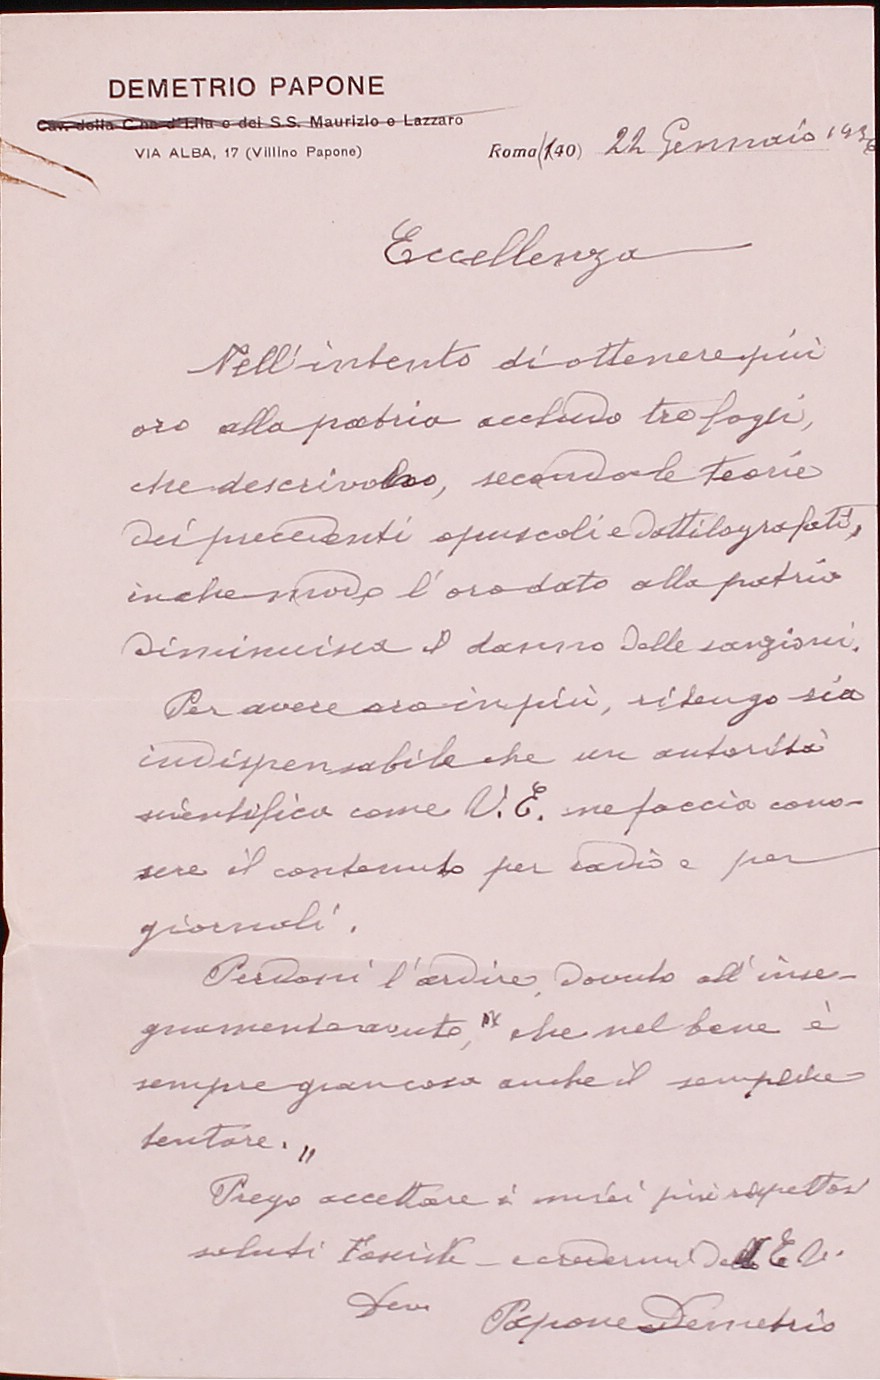 DEMETRIO PAPONE
Cav. della C.na d'Italia e dei S.S. Maurizio e Lazzaro
VIA ALBA, 17 (Villino Papone)
Roma (140) 22 Gennaio 1936
Eccellenza
Nell'intento di ottenere più
oro alla patria accludo tre fogli,
che descrivono, secondo le teorie
dei precedenti opuscoli e dattilografati,
in che modo l'oro dato alla patria
diminuisca il danno delle sanzioni.
Per avere oro in più, ritengo sia
indispensabile che un autorità
scientifica come V.E. ne faccia cono-
scere il contenuto per radio e per
giornali.
Perdoni l'ardire, dovuto all'inse-
gnamento avuto, " che nel bene è
sempre gran cosa anche il semplice
tentare. "
Prego accettare i miei più rispettosi
saluti Fascisti e credermi dell' E.V.
Dev.
Papone Demetrio